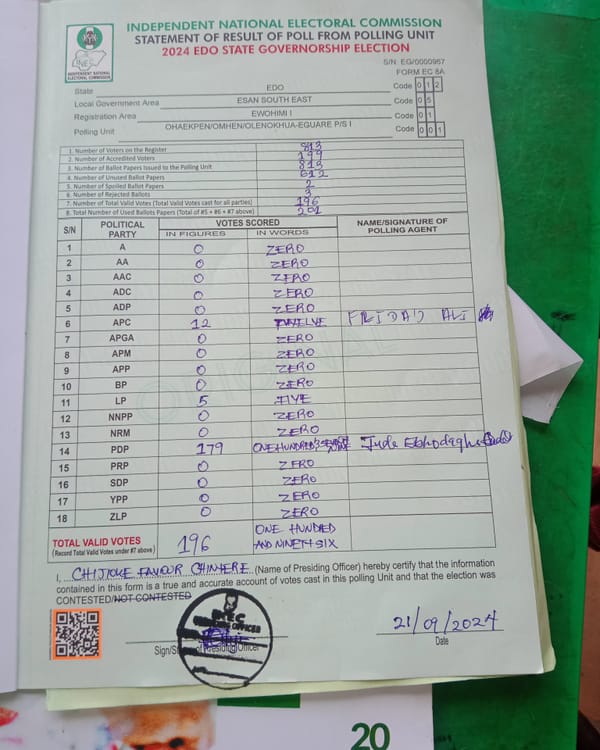 INDEPENDENT NATIONAL ELECTORAL COMMISSION
STATEMENT OF RESULT OF POLL FROM POLLING UNIT
2024 EDO STATE GOVERNORSHIP ELECTION
INEC
INDEPENDENT NATIONAL ELECTORAL COMMISSION
S/N EG/0000967
FORM EC 8A
State EDO Code 0 1 2
Local Government Area ESAN SOUTH EAST Code 0 5
Registration Area EWOHIMI I Code 0 1
Polling Unit OHAEKPEN/OMHEN/OLENOKHUA-EGUARE P/S I Code 0 0 1
1. Number of Voters on the Register 813
2. Number of Accredited Voters 199
3. Number of Ballot Papers Issued to the Polling Unit 813
4. Number of Unused Ballot Papers 612
5. Number of Spoiled Ballot Papers 2
6. Number of Rejected Ballots 3
7. Number of Total Valid Votes (Total Valid Votes cast for all parties) 196
8. Total Number of Used Ballots Papers (Total of #5 + #6 + #7 above) 201
S/N POLITICAL PARTY VOTES SCORED NAME/SIGNATURE OF POLLING AGENT
IN FIGURES IN WORDS
1 A 0 ZERO
2 AA 0 ZERO
3 AAC 0 ZERO
4 ADC 0 ZERO
5 ADP 0 ZERO
6 APC 12 TWELVE FRIDAY ALI
7 APGA 0 ZERO
8 APM 0 ZERO
9 APP 0 ZERO
10 BP 0 ZERO
11 LP 5 FIVE
12 NNPP 0 ZERO
13 NRM 0 ZERO
14 PDP 179 ONE HUNDRED & SEVENTY NINE Jude Ebhodaghe
15 PRP 0 ZERO
16 SDP 0 ZERO
17 YPP 0 ZERO
18 ZLP 0 ZERO
TOTAL VALID VOTES 196 ONE HUNDRED
(Record Total Valid Votes under #7 above) AND NINETY SIX
I, CHIJIOKE FAVOUR CHINYERE (Name of Presiding Officer) hereby certify that the information
contained in this form is a true and accurate account of votes cast in this polling Unit and that the election was
CONTESTED/NOT CONTESTED
INEC
PRESIDING OFFICER
21/09/2024
Sign/ of Presiding Officer
Date
ORIGINAL
20